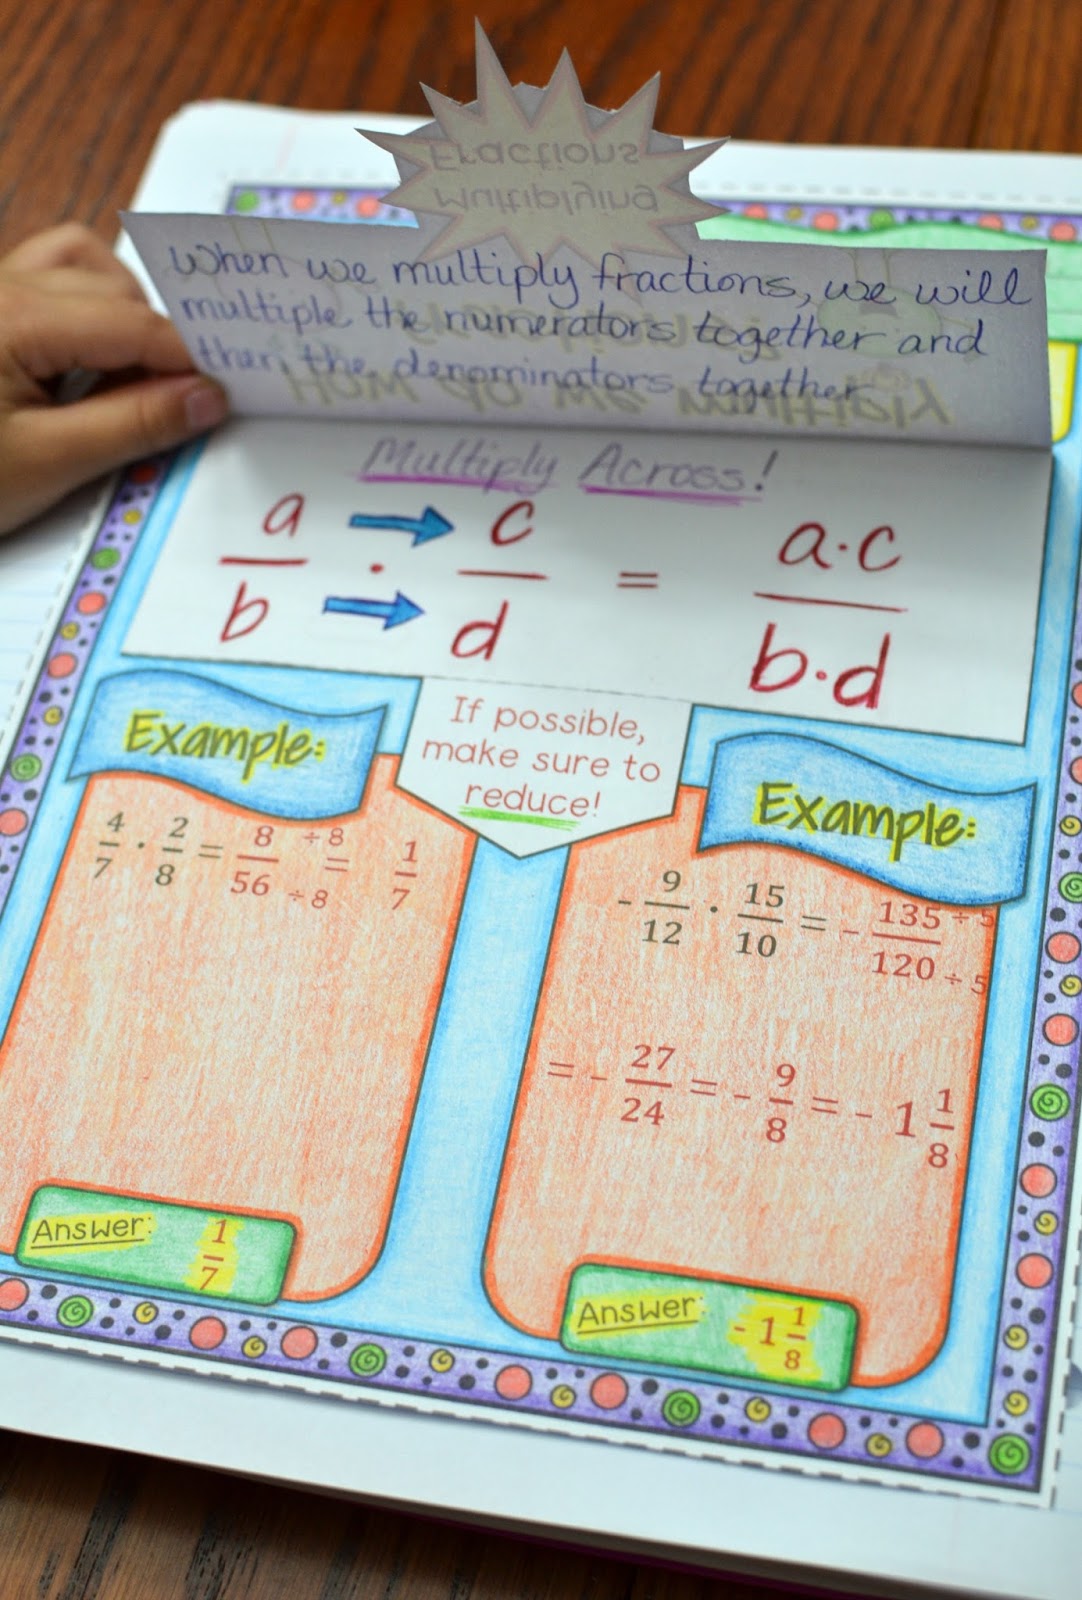 Fractions
Multiplying
When we multiply fractions, we will
multiple the numerators together and
then the denominators together
Multiply Across!
a/b → → · c/d = a·c/b·d
If possible,
make sure to
reduce!
Example:
4/7 · 2/8 = 8/56 ÷8/÷8 = 1/7
Answer: 1/7
Example:
-9/12 · 15/10 = -135/120 ÷5/÷5
= -27/24 = -9/8 = -1 1/8
Answer: -1 1/8